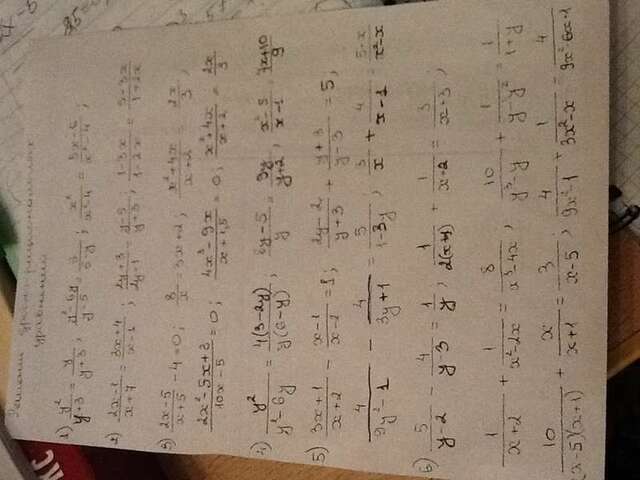 Решение дробно-рациональных
уравнений
1) y²/(y+3) = y/(y+3) ; (y²-6y)/(y-5) = 5/(5-y) ; x²/(x²-4) = (5x-6)/(x²-4) ;
2) (2x-1)/(x+7) = (3x+4)/(x-1) ; (2y+3)/(2y-1) = (y-5)/(y+3) ; (1-3x)/(1-2x) = (5-3x)/(1+2x)
3) (2x-5)/(x+5) - 4 = 0 ; 8/x = 3x+2 ; (x²+4x)/(x+2) = 2x/3 ;
(2x²-5x+3)/(10x-5) = 0 ; (4x³-9x)/(x+1,5) = 0 ; (x²+4x)/(x+2) = 2x/3
4) y²/(y²-6y) = 4(3-2y)/(y(6-y)) ; (8y-5)/y = 9y/(y+2) ; (x²-5)/(x-1) = (7x+10)/9
5) (3x+1)/(x+2) - (x-1)/(x-2) = 1 ; (2y-2)/(y+3) + (y+3)/(y-3) = 5 ;
4/(9y²-1) - 4/(3y+1) = 5/(1-3y) ; 3/x + 4/(x-1) = (5-x)/(x²-x)
6) 5/(y-2) - 4/(y-3) = 1/y ; 1/(2(x+1)) + 1/(x+2) = 3/(x+3) ;
1/(x+2) + 1/(x²-2x) = 8/(x³-4x) , 10/(y³-y) + 1/(y-y²) = 1/(1+y)
10/((x-5)(x+1)) + x/(x+1) = 3/(x-5) ; 4/(9x²-1) + 1/(3x²-x) = 4/(9x²-6x+1)